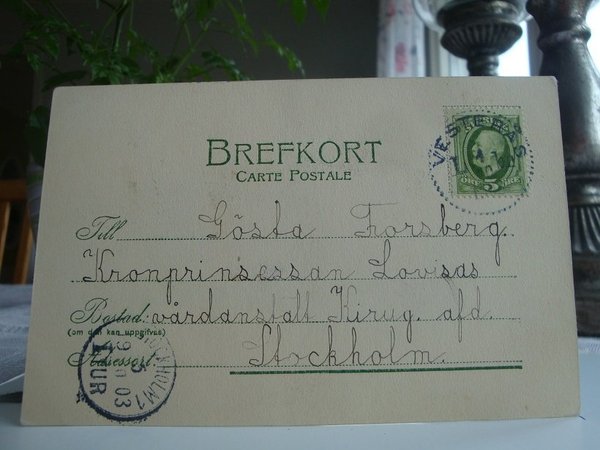 BREFKORT
CARTE POSTALE
VESTERÅS
5
Till Gösta Forsberg.
Kronprinsessan Lovisas
Bostad: vårdanstalt Kirug. afd.
(om den kan uppgifvas)
Adressort: Stockholm.
STOCKHOLM 1
03
TUR